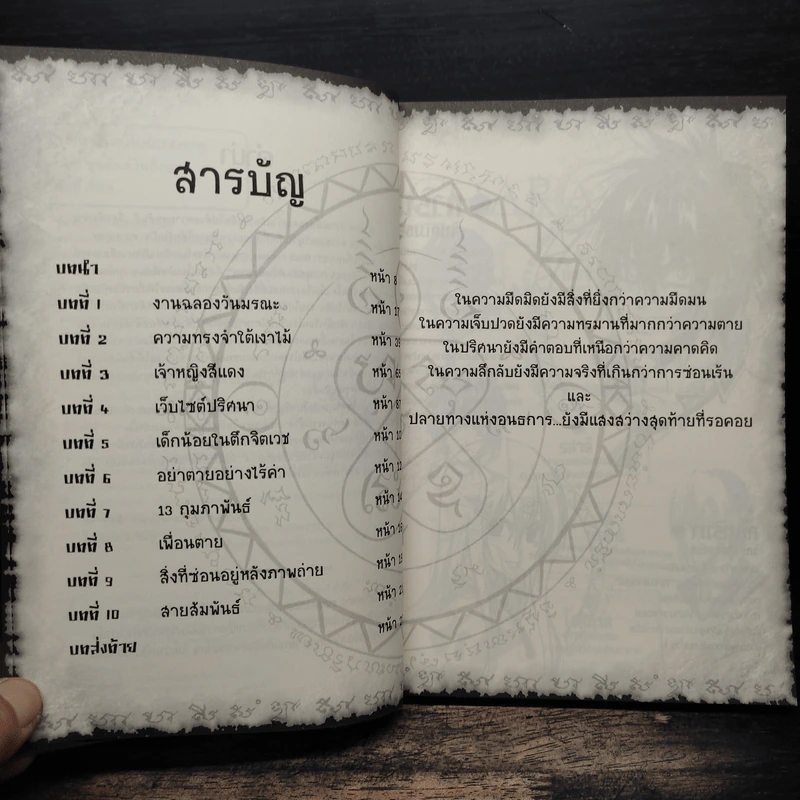 สารบัญ
บทนำ หน้า 8
บทที่ 1 งานฉลองวันมรณะ หน้า 17
บทที่ 2 ความทรงจำใต้เงาไม้ หน้า
บทที่ 3 เจ้าหญิงสีแดง หน้า
บทที่ 4 เว็บไซต์ปริศนา หน้า
บทที่ 5 เด็กน้อยในตึกจิตเวช หน้า
บทที่ 6 อย่าตายอย่างไร้ค่า หน้า
บทที่ 7 13 กุมภาพันธ์ หน้า
บทที่ 8 เพื่อนตาย หน้า
บทที่ 9 สิ่งที่ซ่อนอยู่หลังภาพถ่าย หน้า
บทที่ 10 สายสัมพันธ์ หน้า
บทส่งท้าย หน้า
ในความมืดมิดยังมีสิ่งที่ยิ่งกว่าความมืดมน
ในความเจ็บปวดยังมีความทรมานที่มากกว่าความตาย
ในปริศนายังมีคำตอบที่เหนือกว่าความคาดคิด
ในความลึกลับยังมีความจริงที่เกินกว่าการซ่อนเร้น
และ
ปลายทางแห่งอนธการ...ยังมีแสงสว่างสุดท้ายที่รอคอย